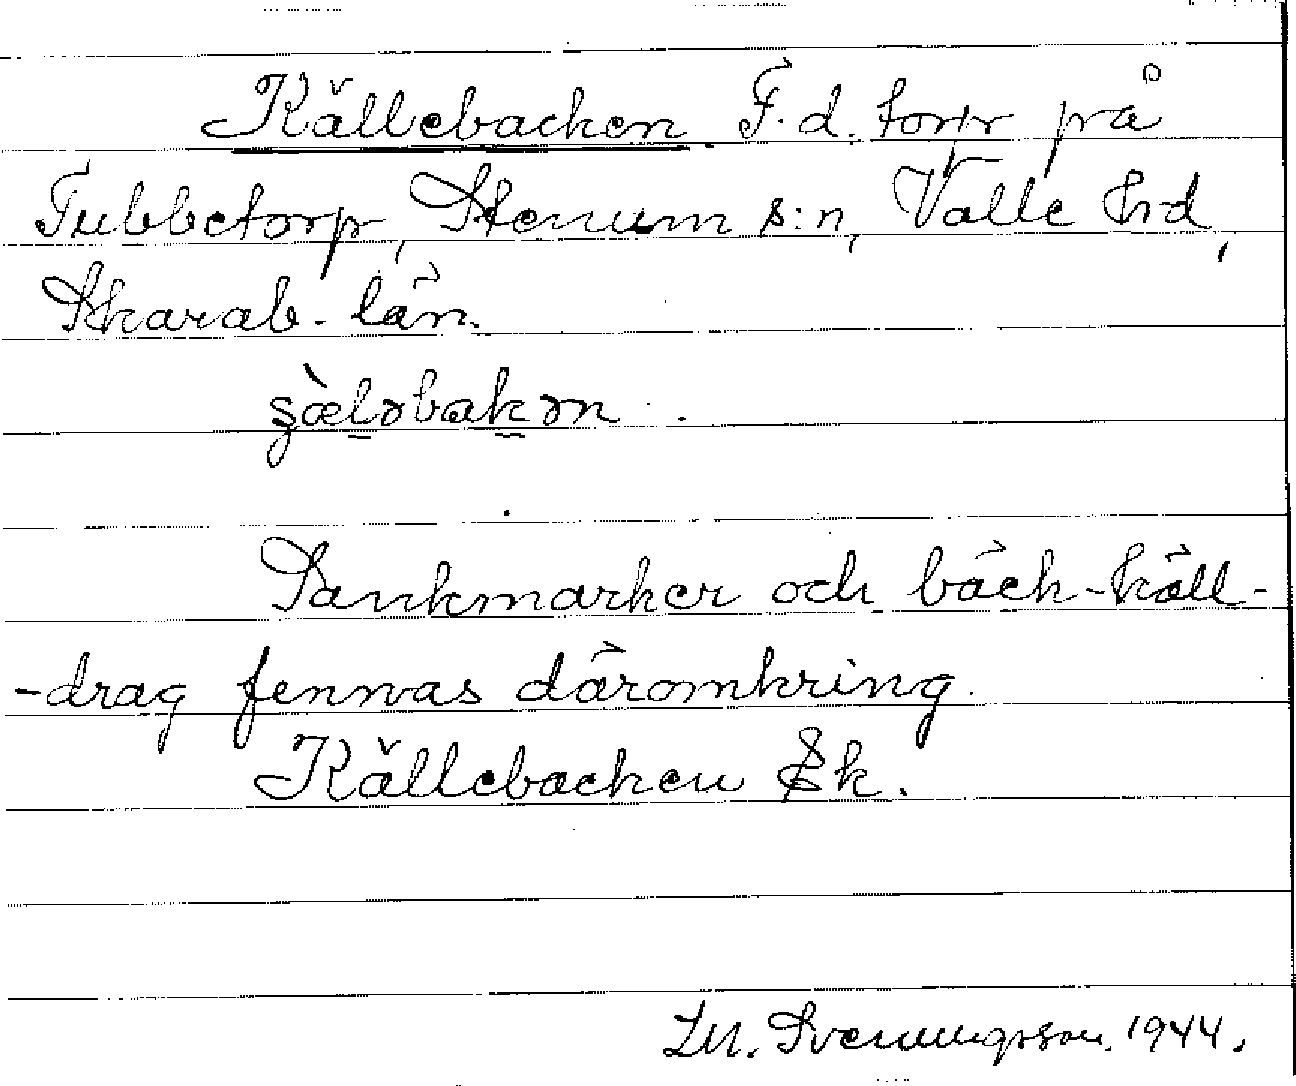 Källebacken F.d. torp på
Tubbetorp, Stenum s:n, Valle h-d,
Skarab. län.
Sankmarker och bäck-käll-
-drag fennas däromkring.
Källebacken Ek.
Lll. Svenungsson. 1944.